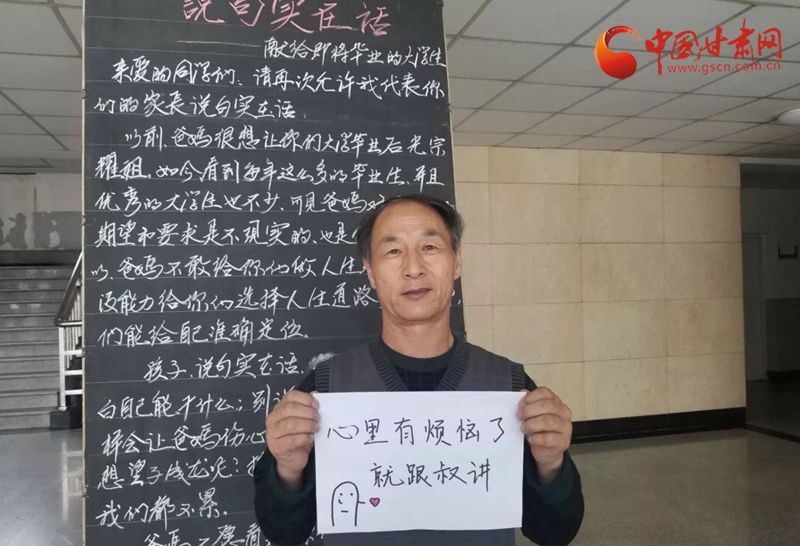 说句实在话
献给即将毕业的大学生
亲爱的同学们：请再次允许我代表你
们的家长说句实在话。
以前，爸妈很想让你们大学毕业后光宗
耀祖。如今，看到每年这么多的毕业生，并且
优秀的大学生也不少，可见爸妈对
期望和要求是不现实的，也是
以，爸妈不敢给你们做人生
没能力给你们选择人生道路
们能给自己准确定位。
孩子，说句实在话，
白自己能干什么；别
样会让爸妈伤心
想望子成龙
我们都不累。
爸妈
心里有烦恼了
就跟叔讲
中国甘肃网
www.gscn.com.cn